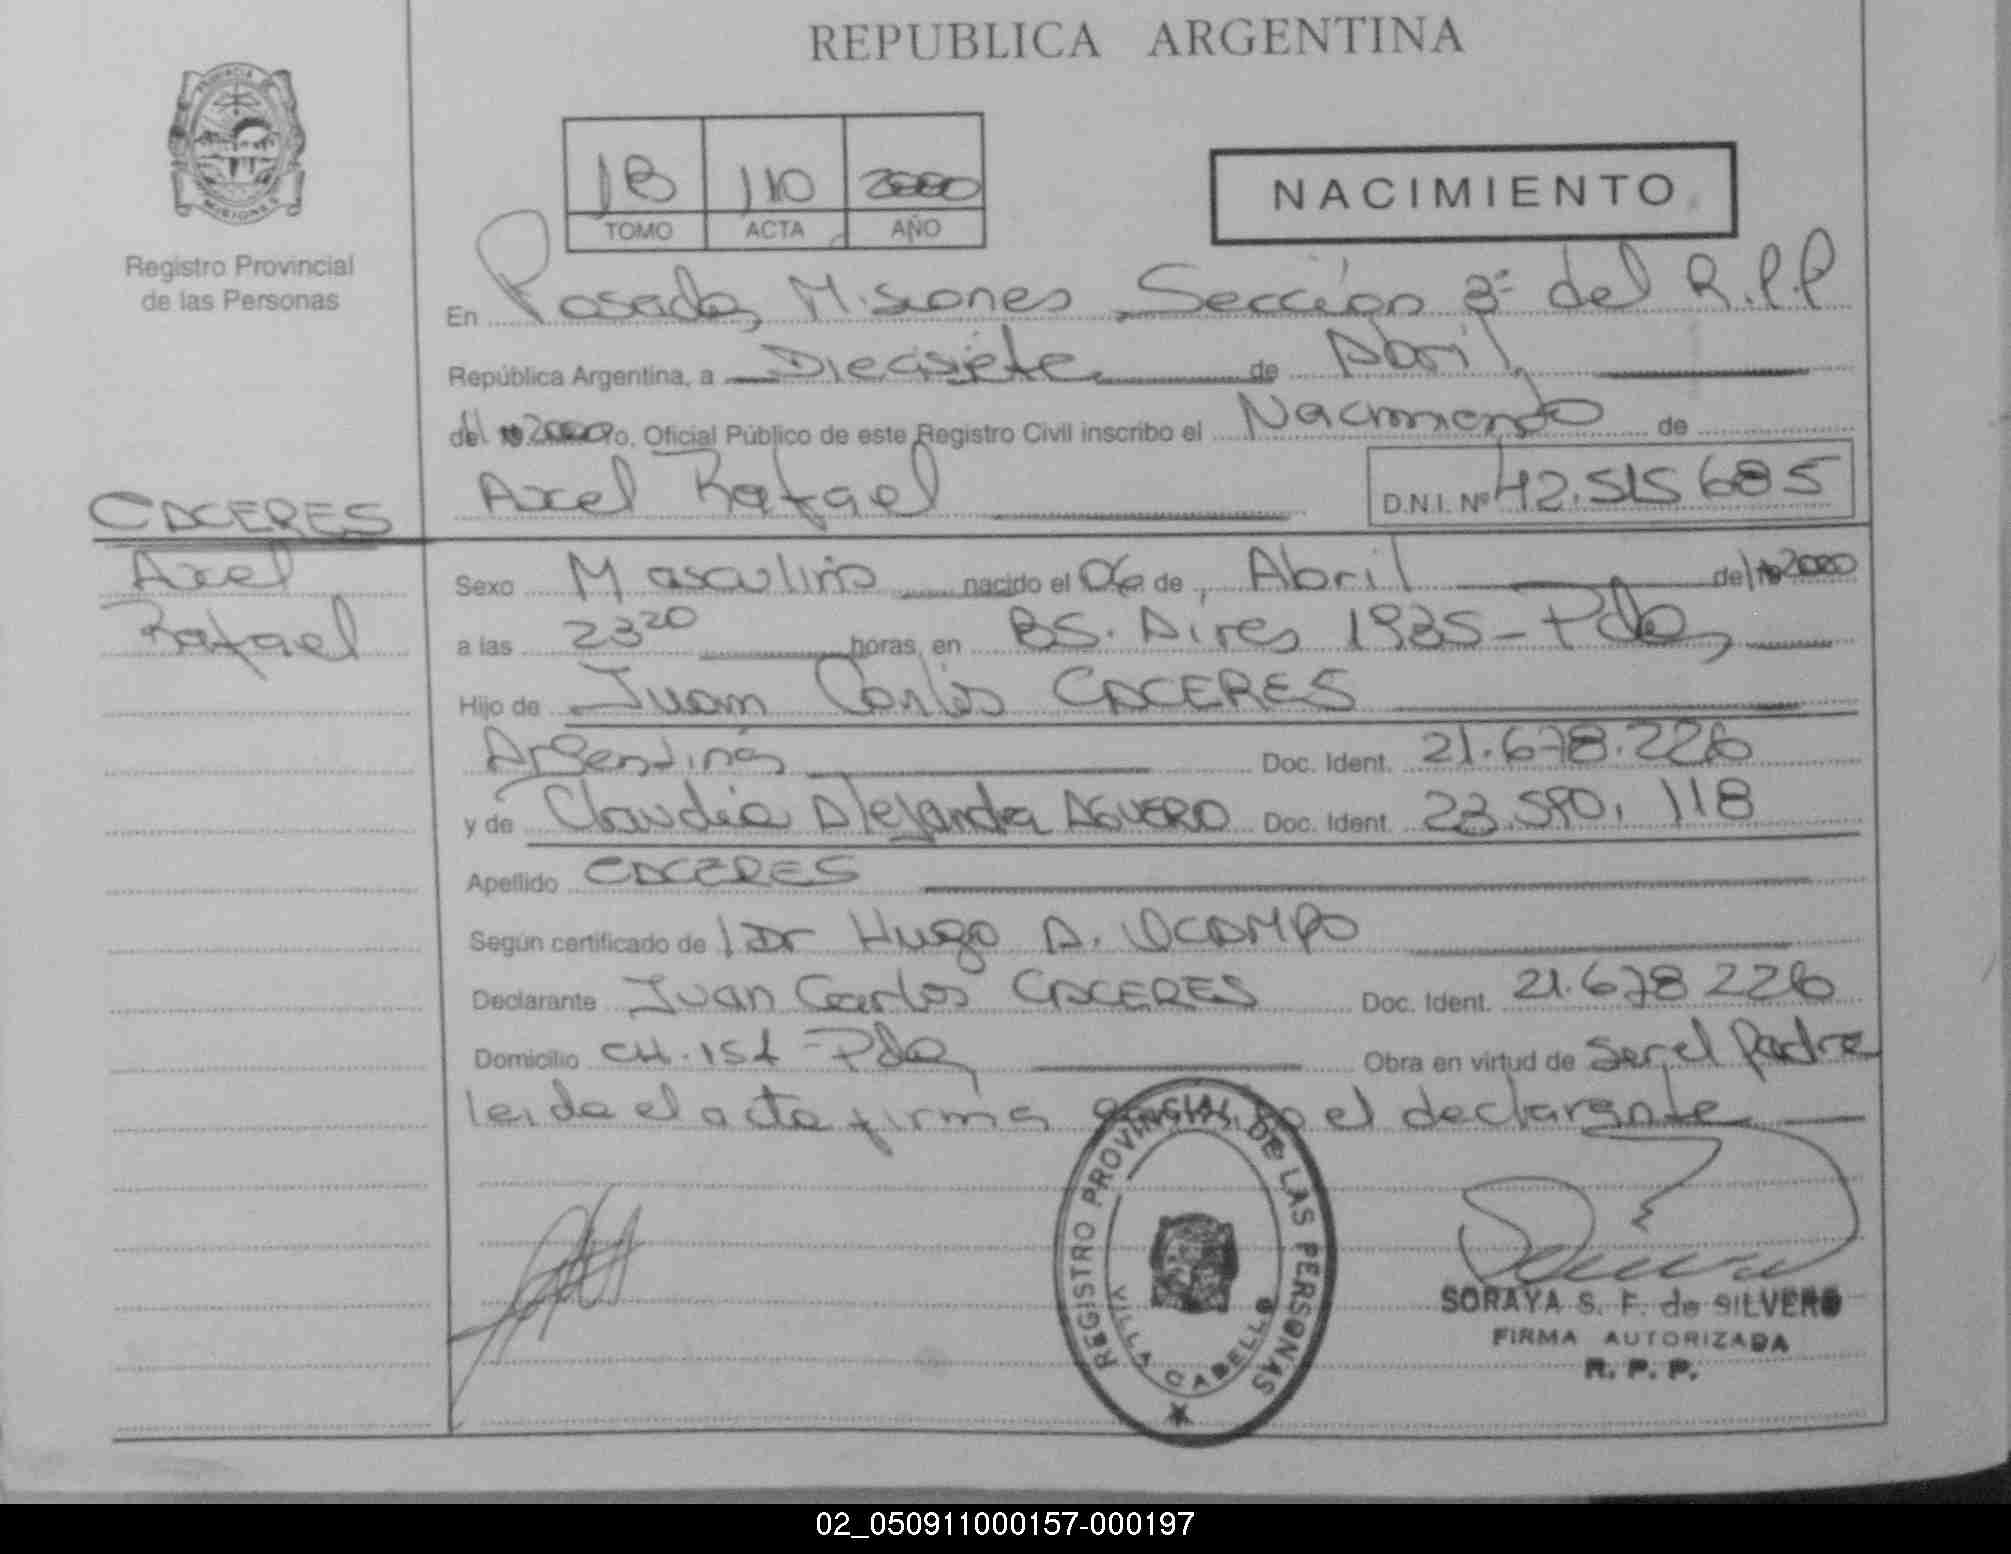 REPUBLICA ARGENTINA
PROVINCIA DE
MISIONES
Registro Provincial
de las Personas
1B 110 2000
TOMO ACTA AÑO
NACIMIENTO
En Posadas, Misiones Sección 3ª del R.P.P
República Argentina, a Diecisiete de Abril,
del 2000 yo, Oficial Público de este Registro Civil inscribo el Nacimiento de
Axel Rafael D.N.I. Nº 42.515.685
CACERES
Axel
Rafael
Sexo Masculino nacido el 06 de Abril del 2000
a las 23 20 horas, en BS. Aires 1935 - Pdas,
Hijo de Juan Carlos CACERES
Argentinos Doc. Ident. 21.678.226
y de Claudia Alejandra AGUERO Doc. Ident. 23.590.118
Apellido CACERES
Según certificado de Dr Hugo A. OCAMPO
Declarante Juan Carlos CACERES Doc. Ident. 21.678 226
Domicilio CH. 151 - Pdas, Obra en virtud de Ser el Padre
leida el acta firma el declarante
REGISTRO PROVINCIAL DE LAS PERSONAS
VILLA CABELLO
SORAYA S. F. de SILVERO
FIRMA AUTORIZADA
R. P. P.
02_050911000157-000197